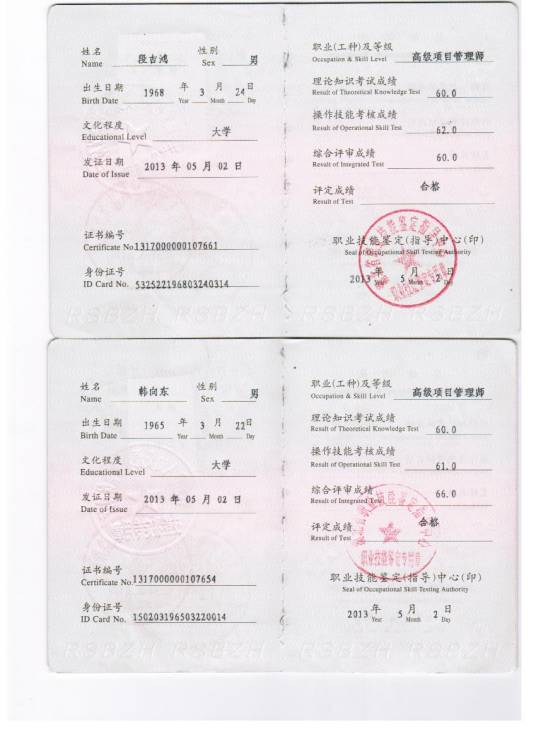 姓名 段吉鸿 性别 男
Name Sex
出生日期 1968 年 3 月 24 日
Birth Date Year Month Day
文化程度 大学
Educational Level
发证日期 2013 年 05 月 02 日
Date of Issue
证书编号
Certificate No. 1317000000107661
身份证号
ID Card No. 532522196803240314
职业(工种)及等级 高级项目管理师
Occupation & Skill Level
理论知识考试成绩
Result of Theoretical Knowledge Test 60.0
操作技能考核成绩
Result of Operational Skill Test 62.0
综合评审成绩
Result of Integrated Test 60.0
评定成绩 合格
Result of Test
职业技能鉴定(指导)中心(印)
Seal of Occupational Skill Testing Authority
2013 年 5 月 2 日
Year Month Day
职业技能鉴定专用章
RSBZH RSBZH RSBZH RSBZH
姓名 韩向东 性别 男
Name Sex
出生日期 1965 年 3 月 22 日
Birth Date Year Month Day
文化程度 大学
Educational Level
发证日期 2013 年 05 月 02 日
Date of Issue
证书编号
Certificate No. 1317000000107654
身份证号
ID Card No. 150203196503220014
职业(工种)及等级 高级项目管理师
Occupation & Skill Level
理论知识考试成绩
Result of Theoretical Knowledge Test 60.0
操作技能考核成绩
Result of Operational Skill Test 61.0
综合评审成绩 66.0
Result of Integrated Test
评定成绩 合格
Result of Test
职业技能鉴定专用章
职业技能鉴定(指导)中心(印)
Seal of Occupational Skill Testing Authority
2013 年 5 月 2 日
Year Month Day
RSBZH RSBZH RSBZH RSBZH